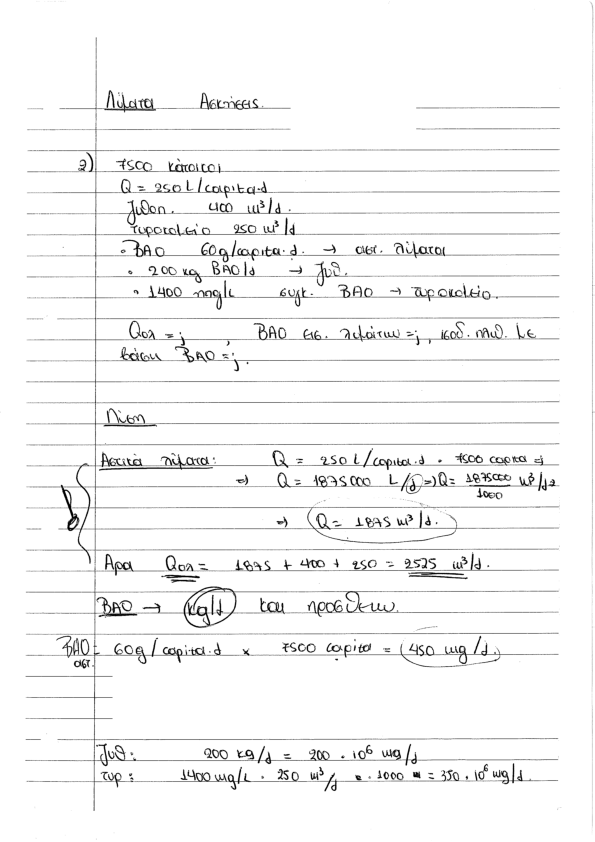 Λύματα Ασκήσεις.
2) 7500 κάτοικοι
Q = 250 L/capita·d
Ζυθοπ. 400 m³/d.
τυροκομείο 250 m³/d
• ΒΑΟ 60g/capita·d. → αστ. λύματα
• 200 kg ΒΑΟ/d → Ζυθ.
• 1400 mg/L συγκ. ΒΑΟ → τυροκομείο.
Qολ = ; , ΒΑΟ εισ. λυμάτων = ; , ισοδ. πληθ. με
βάση ΒΑΟ = ; .
Λύση
Αστικά λύματα: Q = 250 L/capita·d · 7500 capita =)
=) Q = 1875000 L/d =) Q = 1875000/1000 m³/d =)
=) Q = 1875 m³/d.
Άρα Qολ = 1875 + 400 + 250 = 2525 m³/d.
ΒΑΟ → kg/d και προσθέτω.
ΒΑΟ αστ. = 60g/capita·d × 7500 capita = 450 mg/d.
Ζυθ: 200 kg/d = 200 · 10⁶ mg/d
τυρ: 1400 mg/L · 250 m³/d · 1000 = 350 · 10⁶ mg/d.